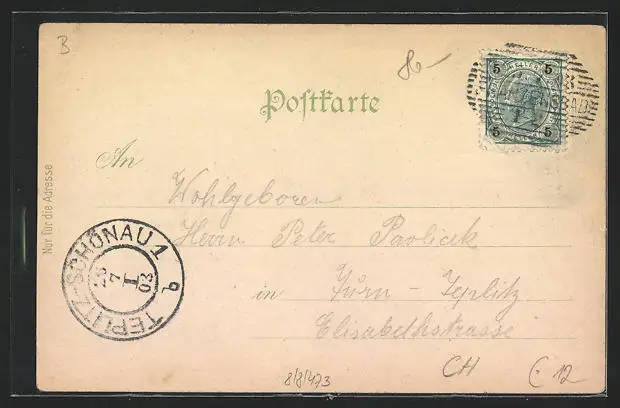 B
86-
5 5
5 5
Postkarte
An
Wohlgeboren
Herrn Peter Pavlicek
in Turn - Teplitz
Elisabethstrasse
Nur für die Adresse
TEPLITZ-SCHÖNAU 1
b
23
7
I
03
8/8/473
CH
C 12